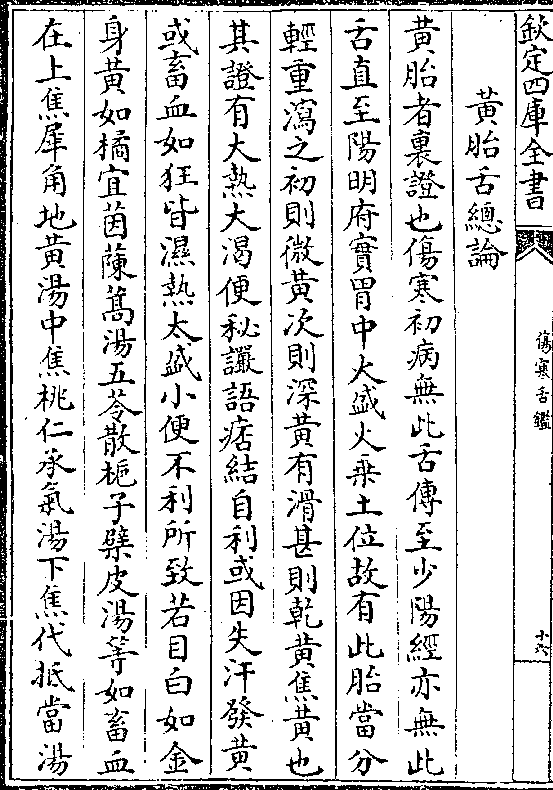 欽定四庫全書
傷寒舌鑑
十六
黃胎舌總論
黃胎者裏證也傷寒初病無此舌傳至少陽經亦無此
舌直至陽明府實胃中火盛火乗土位故有此胎當分
輕重瀉之初則微黃次則深黃有滑甚則乾黃焦黃也
其證有大熱大渴便秘讝語痞結自利或因失汗發黃
或畜血如狂皆濕熱太盛小便不利所致若目白如金
身黃如橘宜茵蔯蒿湯五苓散梔子蘗皮湯等如畜血
在上焦犀角地黃湯中焦桃仁承氣湯下焦代抵當湯